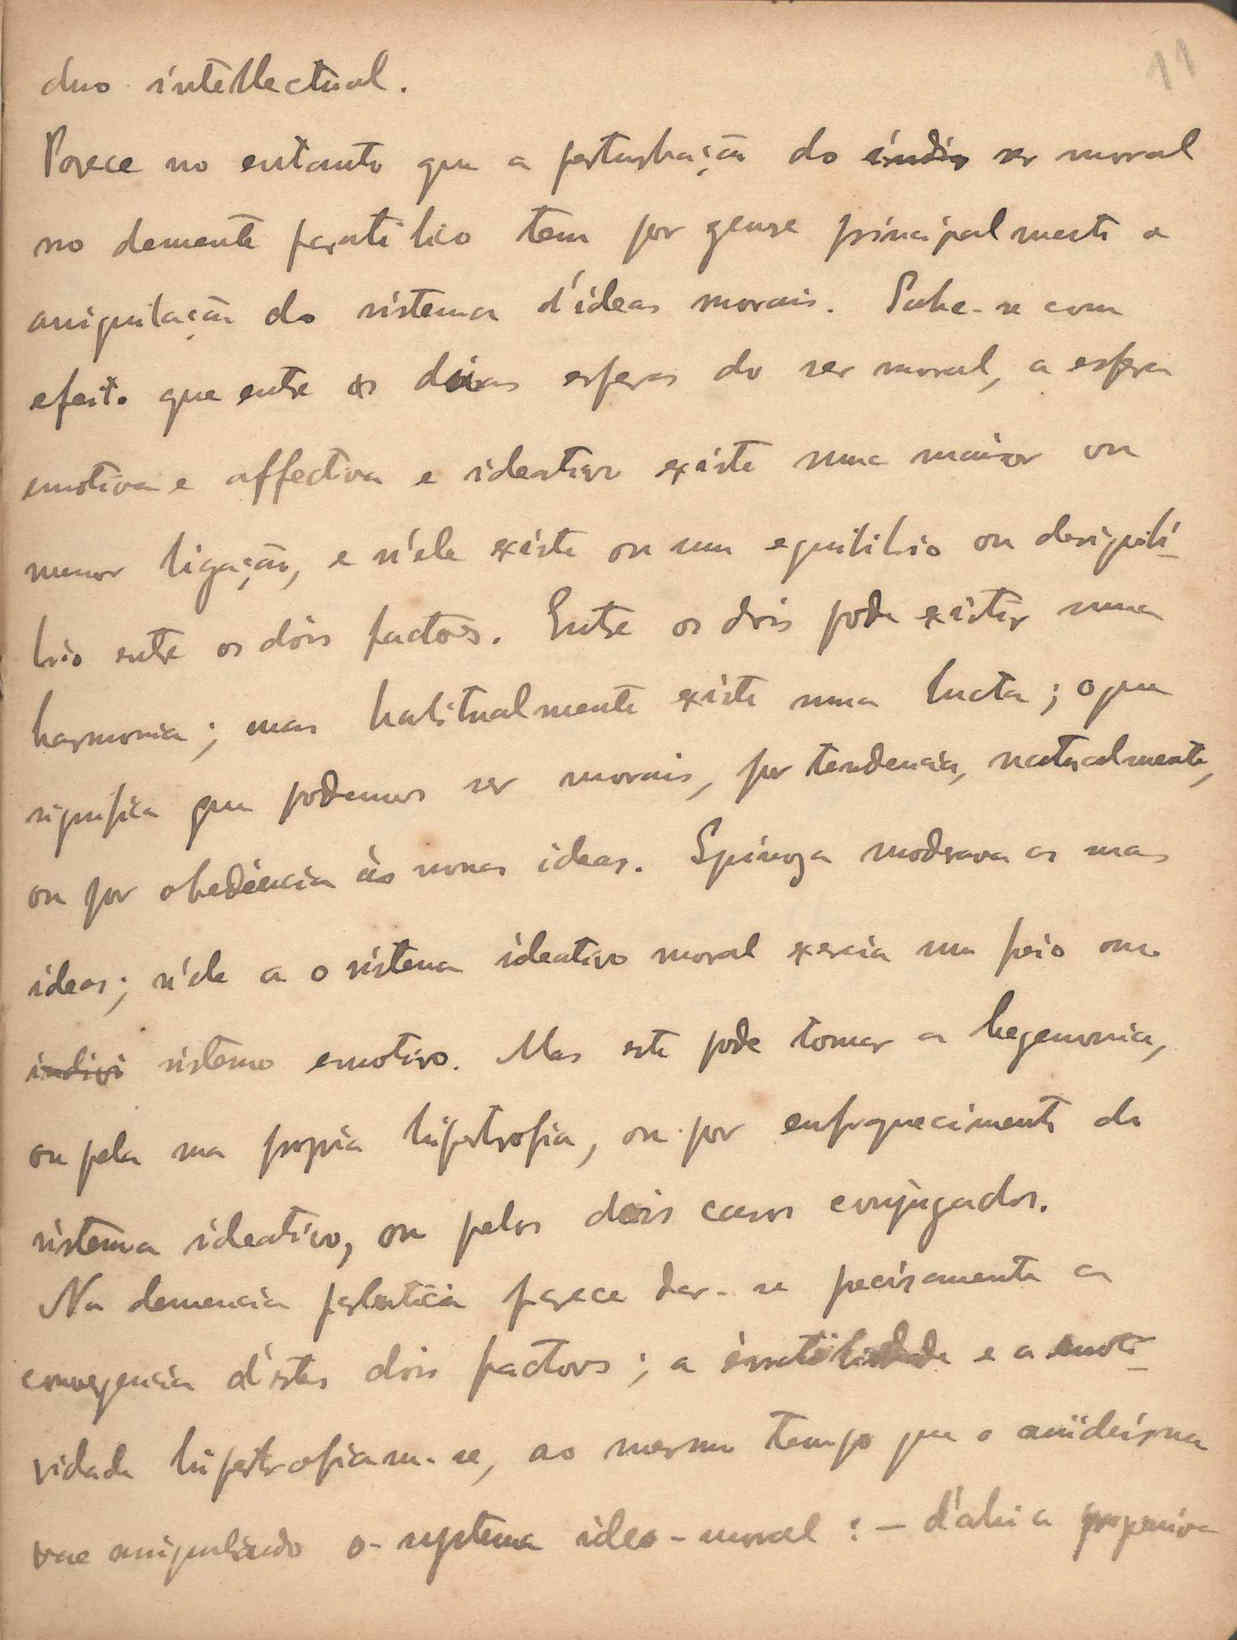 11
duo intellectual.
Parece no entanto que a perturbação do indiv ser moral
no demente paralitico tem por genese principalmente a
aniquilação do sistema d'ideas morais. Sabe-se com
efeito que entre as duas esferas do ser moral, a esfera
emotiva e affectiva e ideativa existe uma maior ou
menor ligação, e n'ele existe ou um equilibrio ou desiquilí-
brio entre os dois factores. Entre os dois pode existir uma
harmonia; mas habitualmente existe uma lucta; o que
significa que podemos ser morais, por tendencia, naturalmente,
ou por obediência às nossas ideas. Spinoza moderava as suas
ideas; n'ele a o sistema ideativo moral exercia um freio ao
indivi sistema emotivo. Mas este pode tomar a hegemonia,
ou pela sua propria hipertrofia, ou por enfraquecimento do
sistema ideativo, ou pelos dois casos conjugados.
Na demencia paralitica parece dar-se precisamente a
convergencia d'estes dois factores; a e a emoti-
vidade hipertrofiam-se, ao mesmo tempo que o
vae aniquilando o systema ideo-moral: – d'ahi a